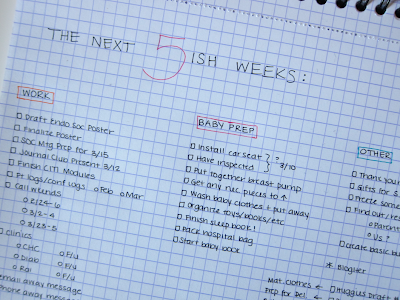 THE NEXT 5ISH WEEKS:
WORK
Draft Endo Soc Poster
Finalize Poster
SOC Mtg Prep for 3/15
Journal Club Present 3/12
Finish CITI Modules
Pt logs/conf logs Feb Mar
Call weekends
2/24-26
3/2-4
3/23-5
Clinics
CHC F/u
Diab F/u
Rai F/u
email away message
Phone away message
BABY PREP
Install car seat
Have inspected 3/10
Put together breast pump
Get any nec pieces to ↑
Wash baby clothes & put away
organize toys/books/etc
Finish sleep book!
Pack hospital bag
Start baby book
OTHER
Thank your
Gifts for
Freeze some
Find out/re
Patent
Us ↑
create basic bu
* Blogher
Mat. clothes ← Huggies Draft
Prep for Del. ←